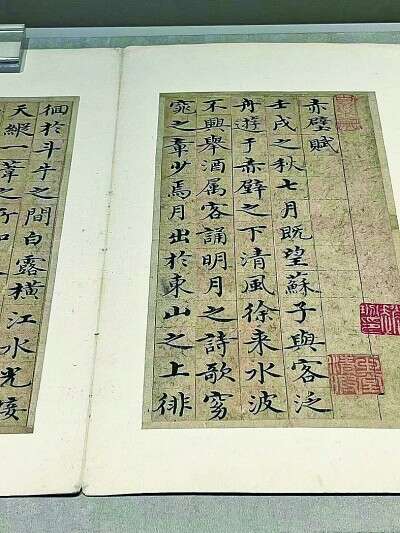 赤壁賦
壬戌之秋七月既望蘇子與客泛
舟遊于赤壁之下清風徐来水波
不興舉酒属客誦明月之詩歌窈
窕之章少焉月出於東山之上徘
徊於斗牛之間白露橫江水光接
天縱一葦之所如